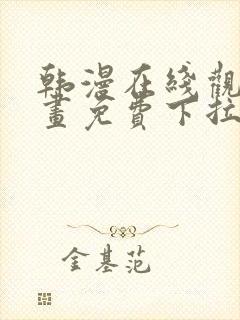 韩漫在线觀
畫免費下拉
金基范